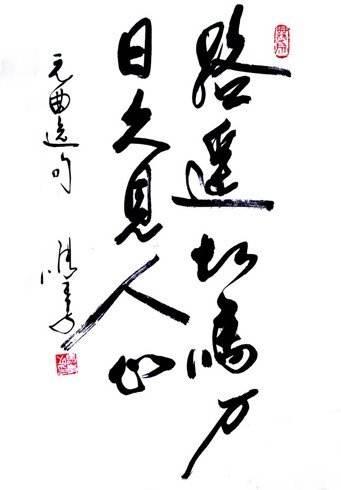 路遥知馬力
日久見人心
元曲选句